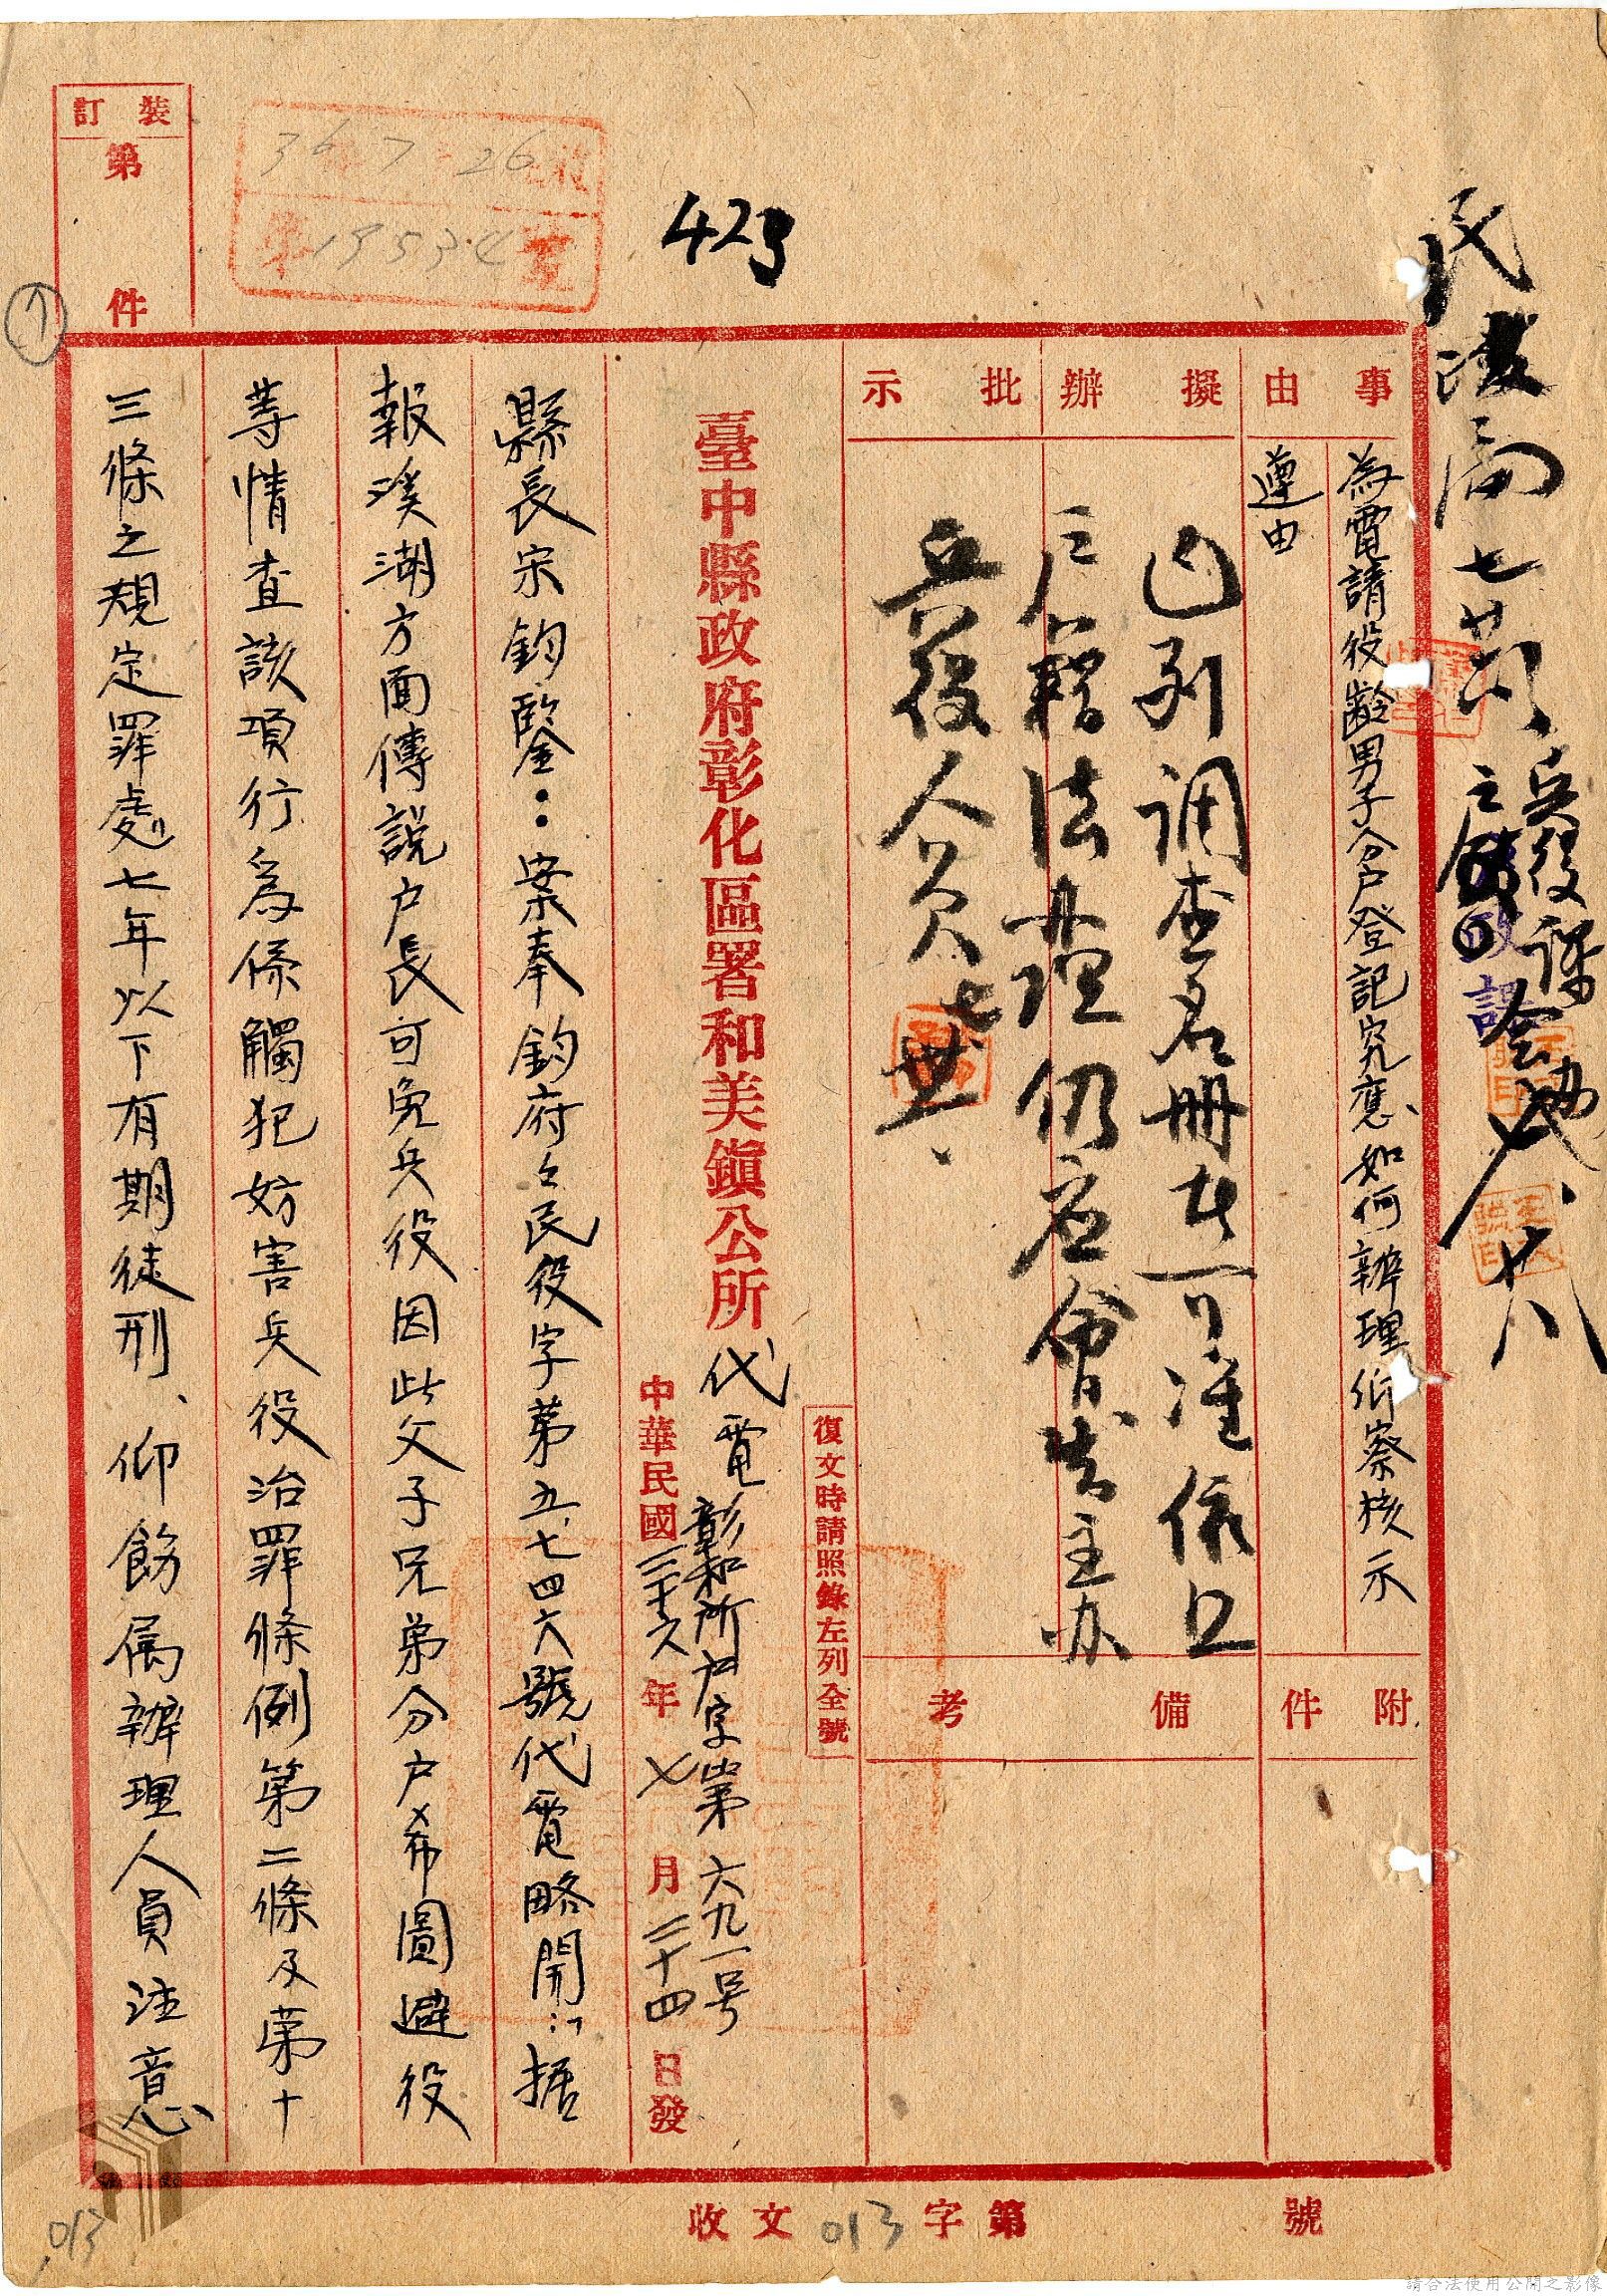 裝訂
第　件
36 7 26
收
19534
423
民政局 七 兵役課會
事由
為電請役齡男子分戶登記究應如何辦理仰察核示
遵由
擬辦
批示
已列調查名冊者可准依正
戶籍法辦理仍應會告主办
兵役人員 七 廿八
附件
備考
復文時請照錄左列全號
臺中縣政府彰化區署和美鎭公所代電
彰和所戶字第六九一号
中華民國三十六年七月二十四日發
縣長宋鈞鑒：案奉鈞府民役字第五七四六號代電略開：「据
報溪湖方面傳說戶長可免兵役因此父子兄弟分戶希圖避役
等情查該項行為係觸犯妨害兵役治罪條例第二條及第十
三條之規定罪處七年以下有期徒刑、仰飭屬辦理人員注意
收文 013 字第　號
013
請合法使用公開之影像